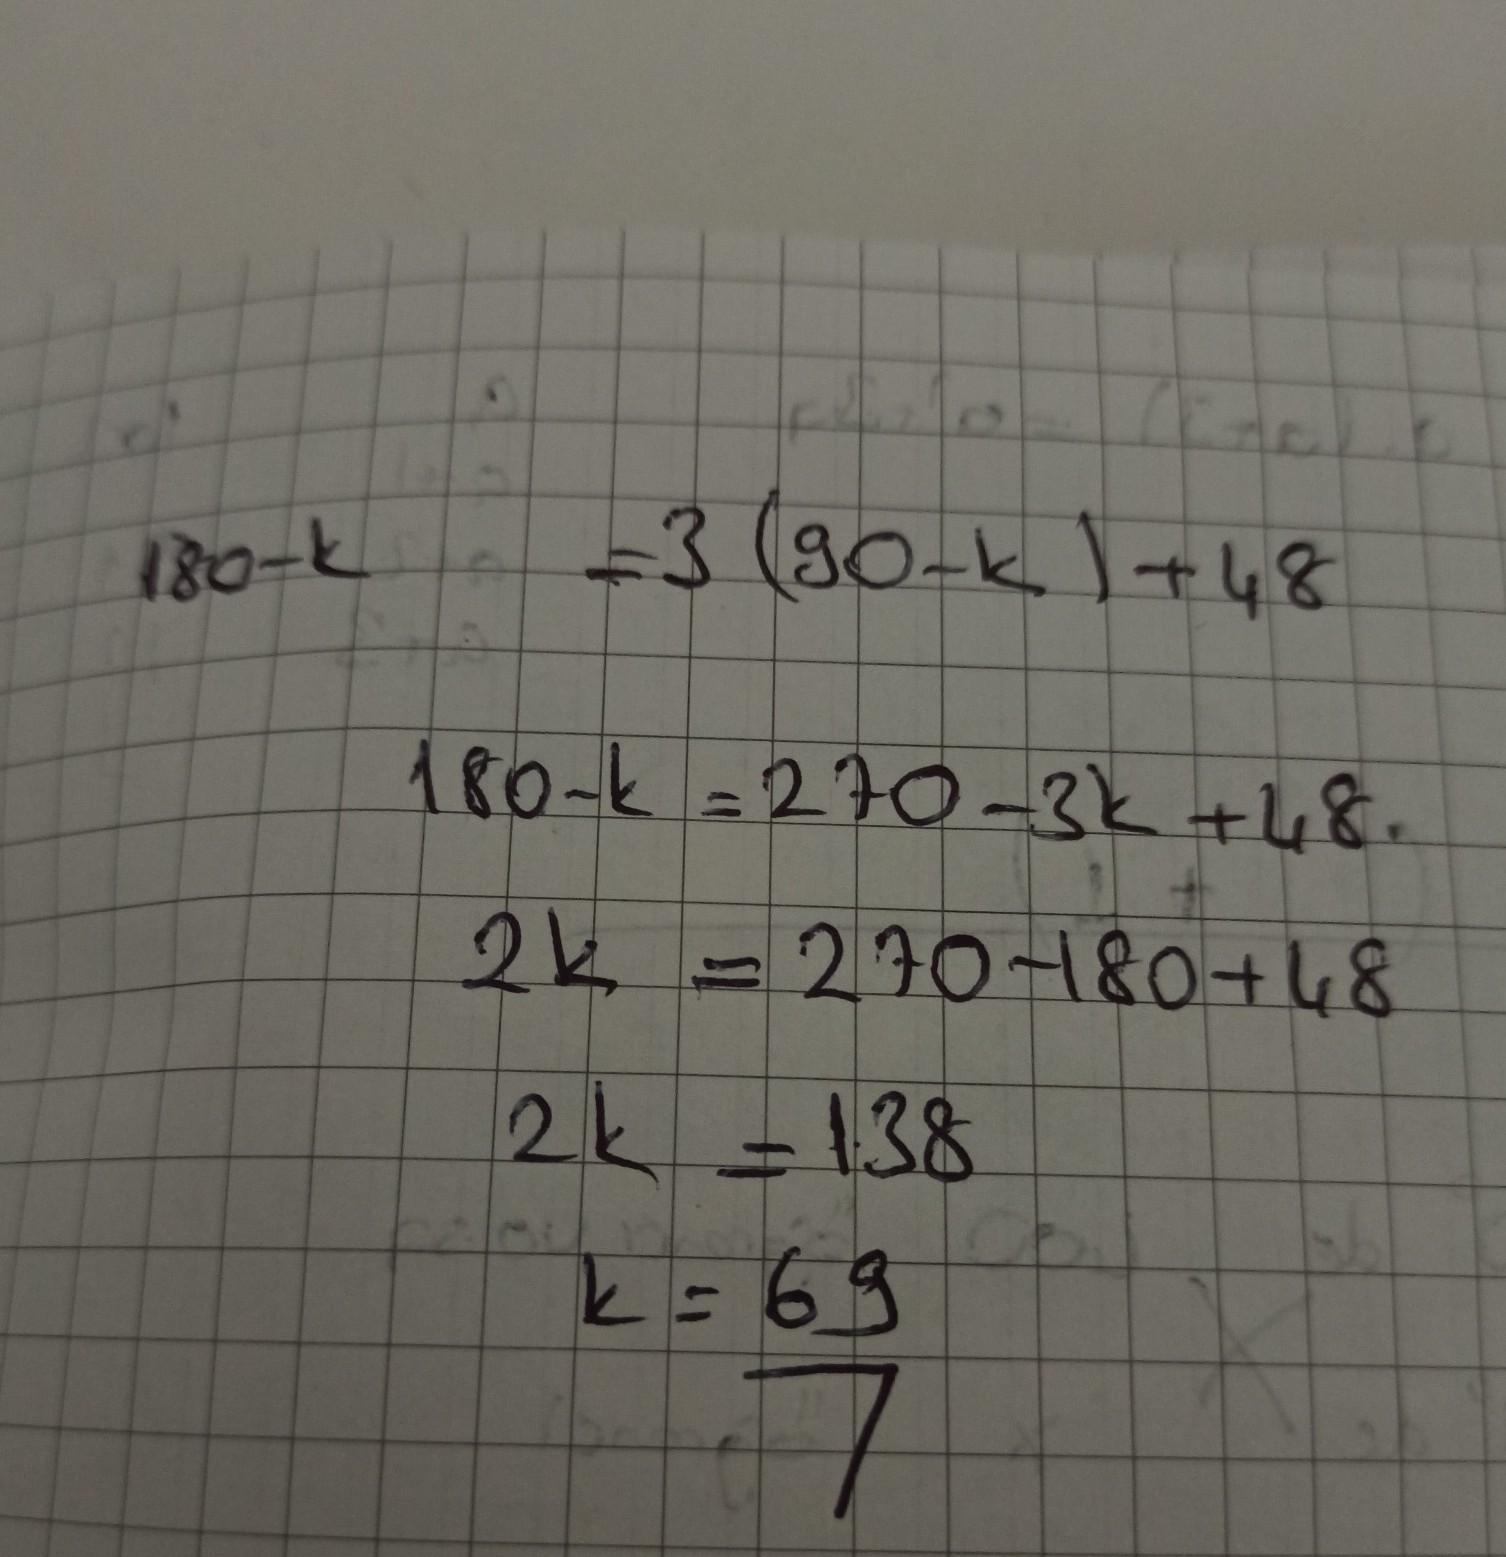 180-k = 3 (90-k) + 48
180-k = 270 - 3k + 48.
2k = 270 - 180 + 48
2k = 138
k = 69